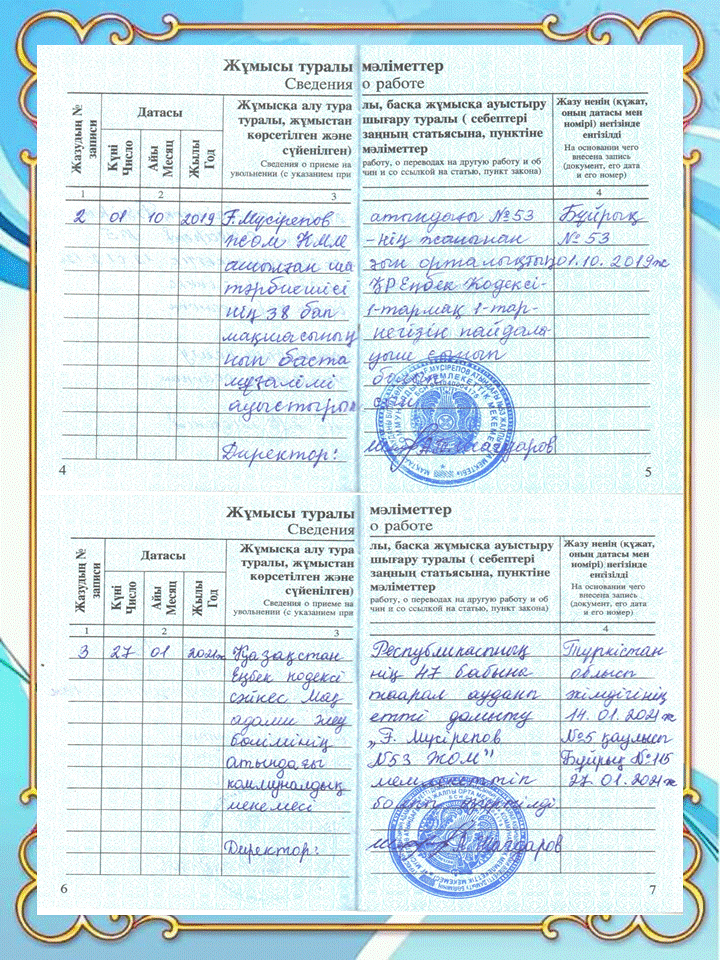 Жұмысы туралы мәліметтер
Сведения о работе
Жазудың №
записи
Датасы
Күні
Число
Айы
Месяц
Жылы
Год
Жұмысқа алу тура лы, басқа жұмысқа ауыстыру
туралы, жұмыстан шығару туралы ( себептері
көрсетілген және заңның статьясына, пунктіне
сүйенілген) мәліметтер
Сведения о приеме на работу, о переводах на другую работу и об
увольнении (с указанием при чин и со ссылкой на статью, пункт закона)
Жазу ненің (құжат,
оның датасы мен
номірі) негізінде
енгізілді
На основании чего
внесена запись
(документ, его дата
и его номер)
1 2 3 4
2 01 10 2019 Ғ. Мүсірепов атындағы №53 Бұйрық
ЖОМ КММ -нің жанынан №53
ашылған ша ғын орталықтың 01.10.2019ж
тәрбиешісі ҚР Еңбек Кодексі-
нің 38 бап 1-тармақ 1-тар-
мақшасының негізін пайдала-
нып баста уыш сынып
мұғалімі
ауыстырыл
Директор:
4 5
Жұмысы туралы мәліметтер
Сведения о работе
Жазудың №
записи
Датасы
Күні
Число
Айы
Месяц
Жылы
Год
Жұмысқа алу тура лы, басқа жұмысқа ауыстыру
туралы, жұмыстан шығару туралы ( себептері
көрсетілген және заңның статьясына, пунктіне
сүйенілген) мәліметтер
Сведения о приеме на работу, о переводах на другую работу и об
увольнении (с указанием при чин и со ссылкой на статью, пункт закона)
Жазу ненің (құжат,
оның датасы мен
номірі) негізінде
енгізілді
На основании чего
внесена запись
(документ, его дата
и его номер)
1 2 3 4
3 27 01 2021ж Қазақстан Республикасының Түркістан
Еңбек кодексі нің 47 бабына облысы
сәйкес Мақ таарал ауданы әкімдігінің
адами әлеу етті дамыту 14.01.2021ж
бөлімінің „Ғ. Мүсірепов №5 қаулысы
атындағы №53 ЖОМ" Бұйрық №115
коммуналдық мемлекеттік 27.01.2021ж
мекемесі болып өзгертілді
Директор: А. Шагдаров
6 7